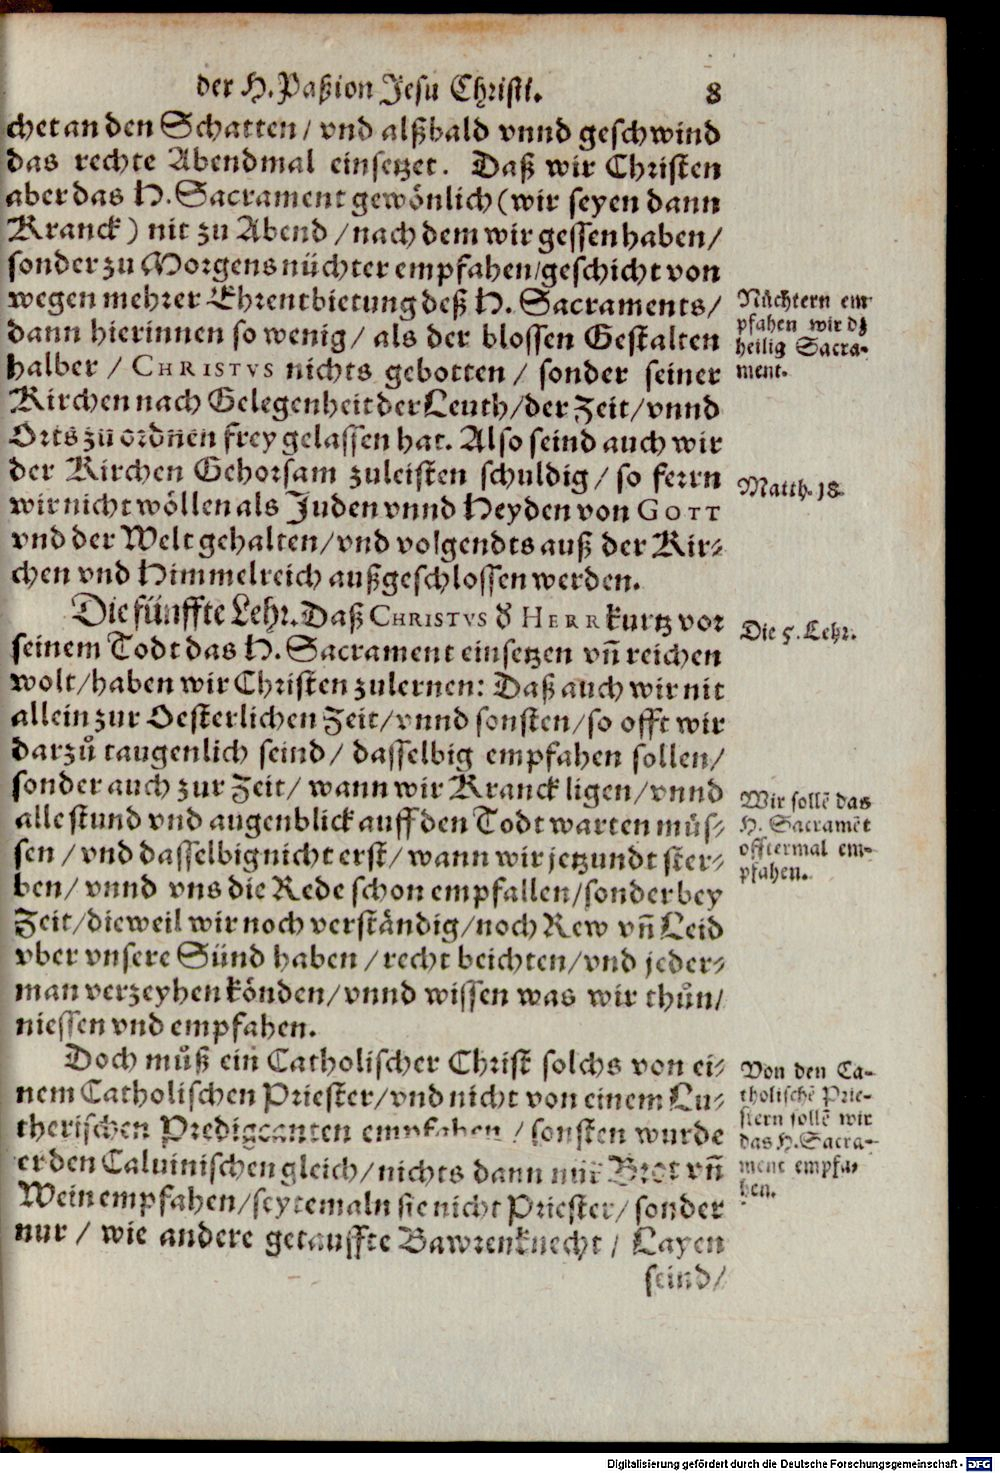 der H. Paßion Jesu Christi. 8
chet an den Schatten / vnd alßbald vnnd geschwind
das rechte Abendmal einsetzet. Daß wir Christen
aber das H. Sacrament gewönlich (wir seyen dann
Kranck) nit zu Abend / nach dem wir gessen haben /
sonder zu Morgens nüchter empfahen / geschicht von
wegen mehrer Ehrentbietung deß H. Sacraments /
dann hierinnen so wenig / als der blossen Gestalten
halber / CHRISTVS nichts gebotten / sonder seiner
Kirchen nach Gelegenheit der Leuth / der Zeit / vnnd
Orts zu ordnen frey gelassen hat. Also seind auch wir
der Kirchen Gehorsam zuleisten schuldig / so ferrn
wir nicht wöllen als Juden vnnd Heyden von GOTT
vnd der Welt gehalten / vnd volgendts auß der Kir⸗
chen vnd Himmelreich außgeschlossen werden.
Die fünffte Lehr. Daß CHRISTVS d̕ HERR kurtz vor
seinem Todt das H. Sacrament einsetzen vn̄ reichen
wolt / haben wir Christen zulernen: Daß auch wir nit
allein zur Oesterlichen Zeit / vnnd sonsten / so offt wir
darzů taugenlich seind / dasselbig empfahen sollen /
sonder auch zur Zeit / wann wir Kranck ligen / vnnd
alle stund vnd augenblick auff den Todt warten müs⸗
sen / vnd dasselbig nicht erst / wann wir jetzundt ster⸗
ben / vnnd vns die Rede schon empfallen / sonder bey
Zeit / dieweil wir noch verständig / noch Rew vn̄ Leid
vber vnsere Sünd haben / recht beichten / vnd jeder⸗
man verzeyhen könden / vnnd wissen was wir thůn /
niessen vnd empfahen.
Doch můß ein Catholischer Christ solchs von ei⸗
nem Catholischen Priester / vnd nicht von einem Lu⸗
therischen Predigcanten empfahen / sonsten wurde
er den Caluinischen gleich / nichts dann nur Brot vn̄
Wein empfahen / seytemaln sie nicht Priester / sonder
nur / wie andere getauffte Bawrenknecht / Layen
seind /
Nüchtern em⸗
pfahen wir dz
heilig Sacra⸗
ment.
Matth. 18.
Die 5. Lehr.
Wir sollē das
H. Sacramēt
offtermal em⸗
pfahen.
Von den Ca⸗
tholischē Prie⸗
stern sollē wir
das H. Sacra⸗
ment empfa⸗
hen.
Digitalisierung gefördert durch die Deutsche Forschungsgemeinschaft - DFG